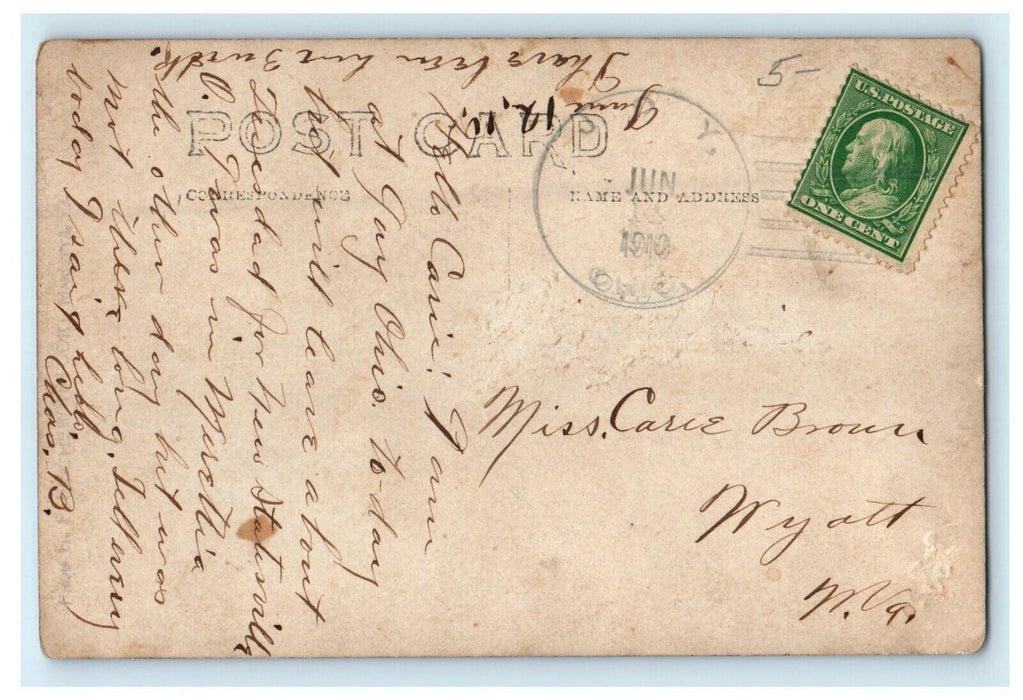 5-
U.S. POSTAGE
ONE CENT
POST CARD
CORRESPONDENCE
NAME AND ADDRESS
JUN
1910
OHIO.
June 12, 10,
Hello Carie! I am
at Guy Ohio. to-day
but will leave about
Tue
dad for New Statsville
O. I was in Merettia
the other day but was
not there long, Tell
today I said hello.
Chas, B.
I have been here 3 weeks
Miss, Carie Brown
Wyatt
W. Va.